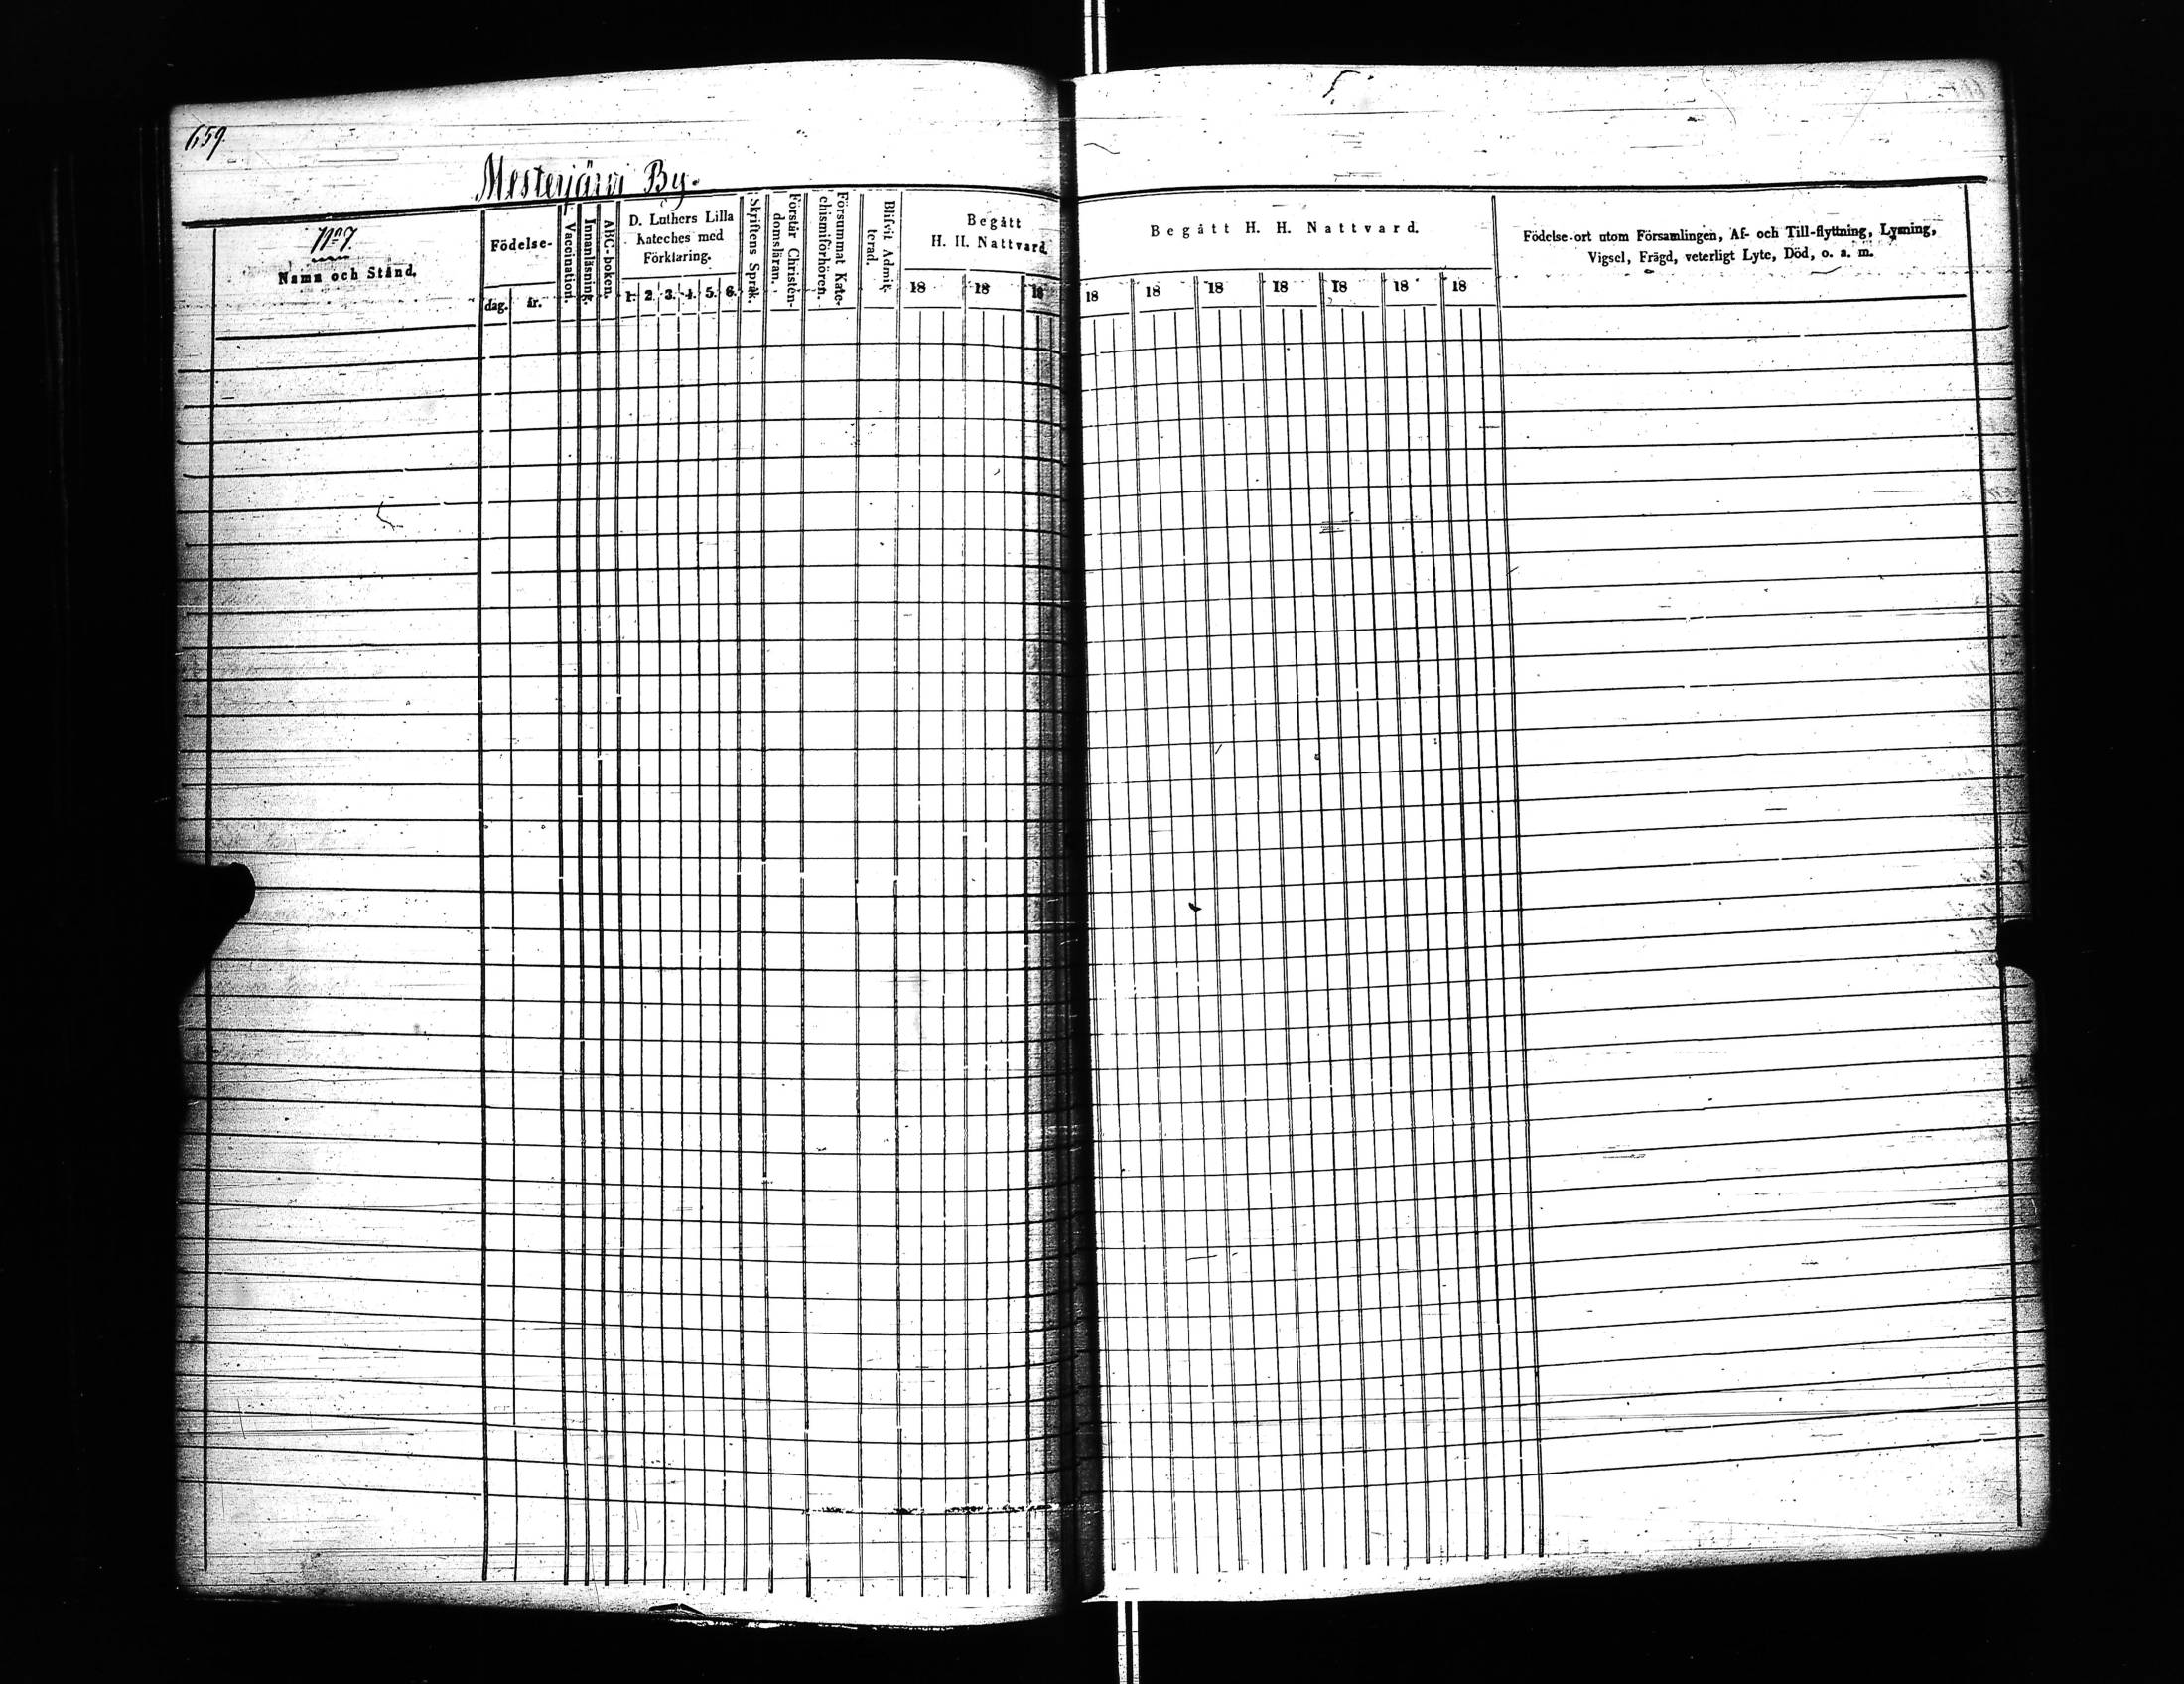 659.
Mesterjärvi By.
No 7.
Namn och Stånd.
Födelse-
dag. år.
Vaccination.
Innanläsning.
ABC-boken.
D. Luthers Lilla
Kateches med
Förklaring.
1. 2. 3. 4. 5. 6.
Skriftens Språk.
Förstår Christen-
domsläran.
Försummat Kate-
chismiförhören.
Blifvit Admit-
terad.
Begått
H. H. Nattvard.
18 18 18
Begått H. H. Nattvard.
18 18 18 18 18 18 18
Födelse-ort utom Församlingen, Af- och Till-flyttning, Lysning,
Vigsel, Frägd, veterligt Lyte, Död, o. s. m.